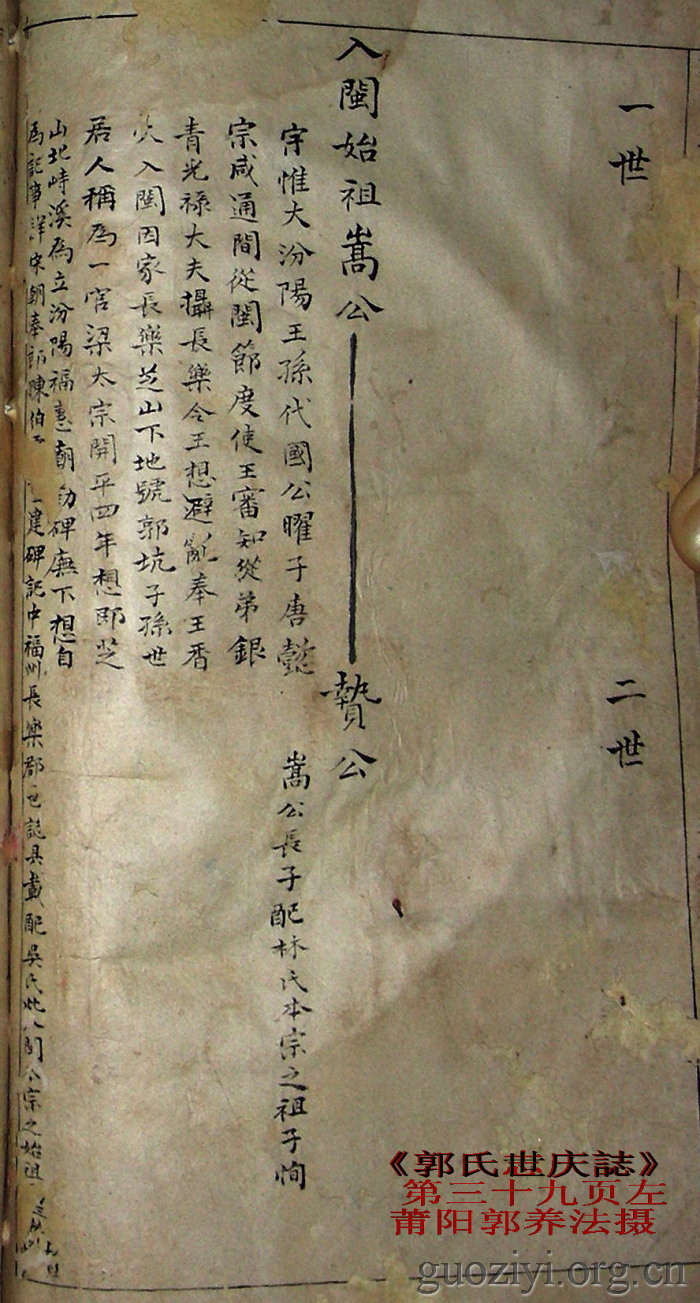 一世
二世
入閩始祖嵩公
贄公
字惟大汾陽王孫代國公曜子唐懿
宗咸通間從閩節度使王審知從弟銀
青光祿大夫攝長樂令王想避亂奉王香
火入閩因家長樂芝山下地號郭坑子孫世
居人稱為一官梁太宗開平四年想即芝
山北峙溪為立汾陽福惠廟勒碑廡下想自
為記事詳宋朝奉郎陳伯 建碑記中福州長樂郡邑誌具載配吳氏此入閩公宗之始祖
嵩公長子配林氏本宗之祖子恂
《郭氏世庆誌》
第三十九页左
莆阳郭养法摄
guoziyi.org.cn